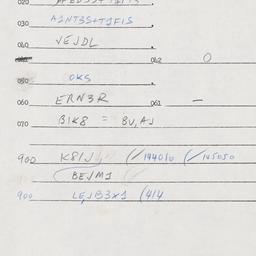 020
030 A1NT3S+T1FIS
040 VEJDL
062 O
050 OKS
060 ERN3R 061 —
070 B1K8 = 8V,AJ
900 K8/J (/144010 (/145050
BEJM1
900 LEJB3X1 (4/4